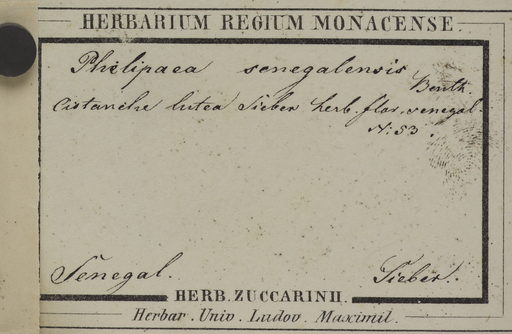 HERBARIUM REGIUM MONACENSE.
Phelipaea senegalensis
Benth.
Cistanche lutea Sieber herb. flor. senegal.
N: 53.
Senegal.
Sieber.
HERB. ZUCCARINII.
Herbar. Univ. Ludov. Maximil.